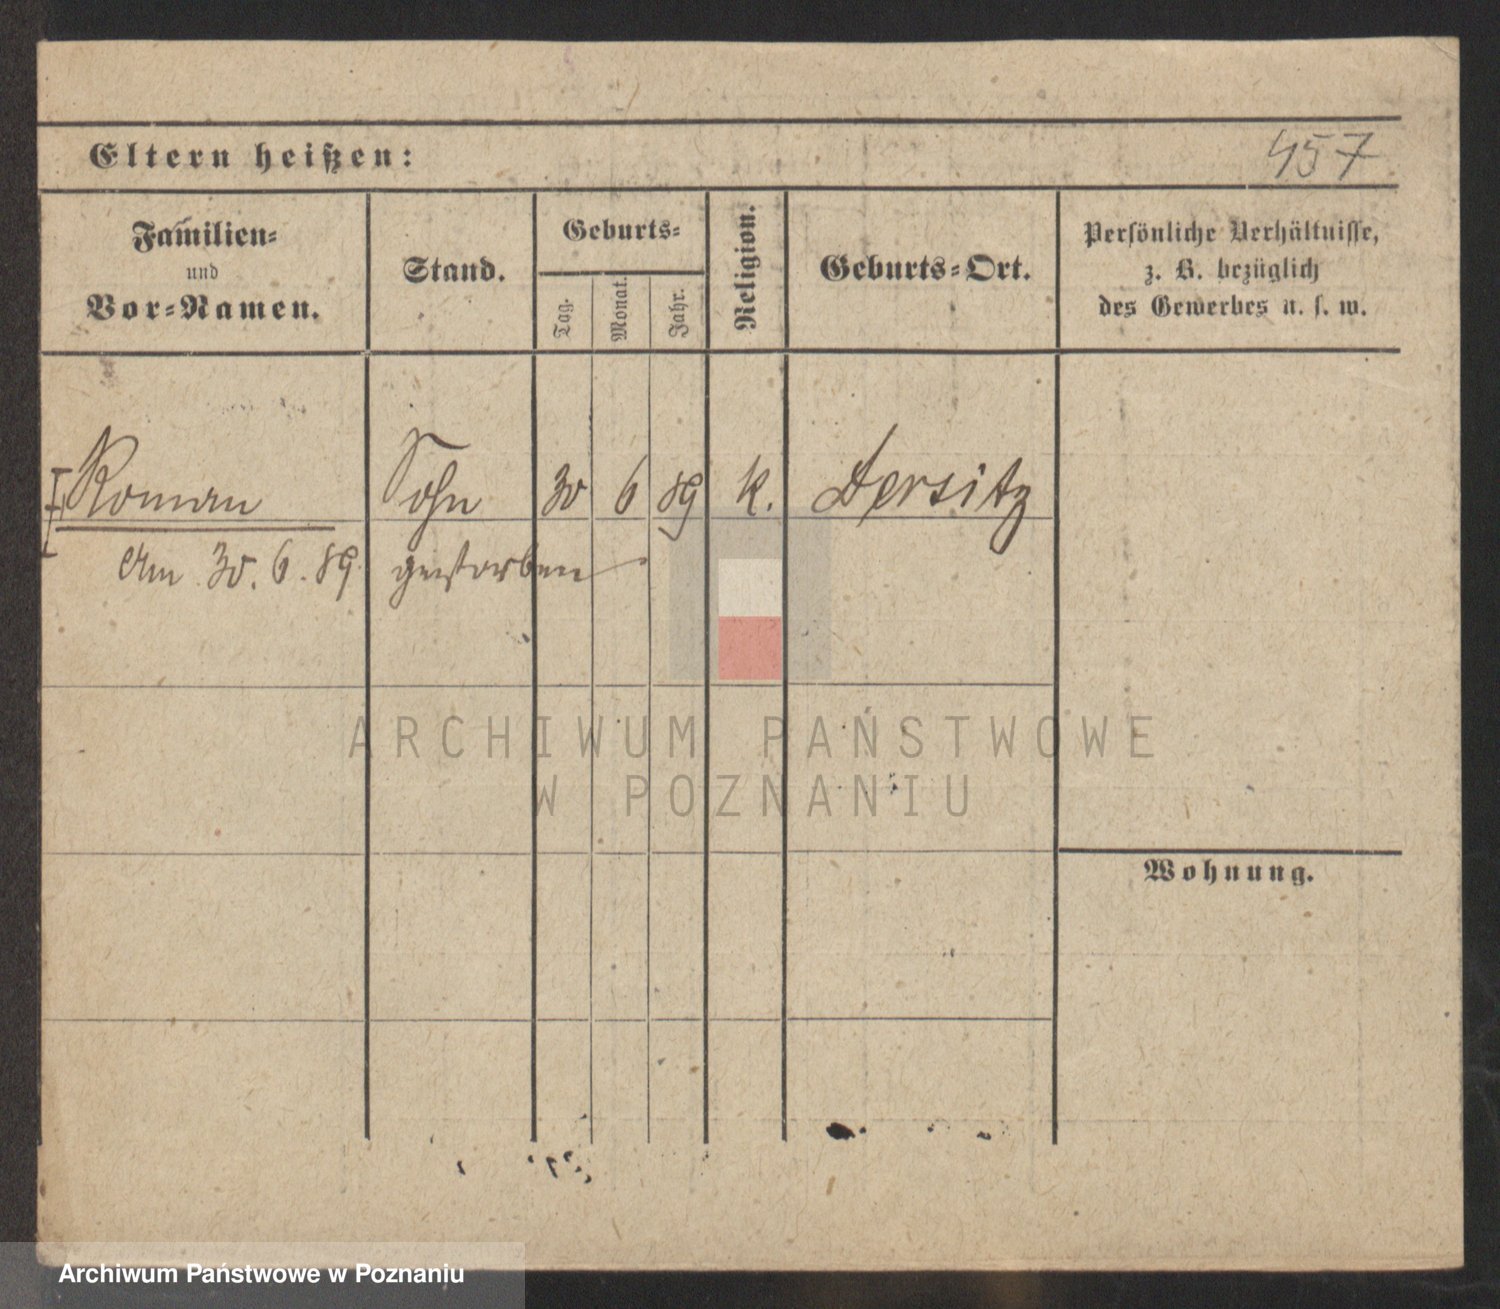 Eltern heißen:
457
Familien-
und
Vor-Namen.
Stand.
Geburts-
Tag.
Monat.
Jahr.
Religion.
Geburts-Ort.
Persönliche Verhältnisse,
z. B. bezüglich
des Gewerbes u. s. w.
Roman Sohn 30 6 89 k. Dersitz
Am 30. 6. 89 gestorben
ARCHIWUM PAŃSTWOWE
W POZNANIU
Wohnung.
Archiwum Państwowe w Poznaniu